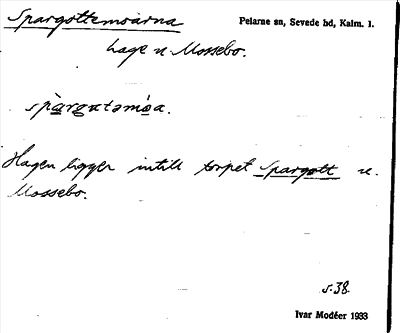 Spargottemoarna
Pelarne sn, Sevede hd, Kalm. l.
hage u. Mossebo.
spàrgɷtəmóa.
Hagen ligger intill torpet Spargott u.
Mossebo.
s. 38
Ivar Modéer 1933